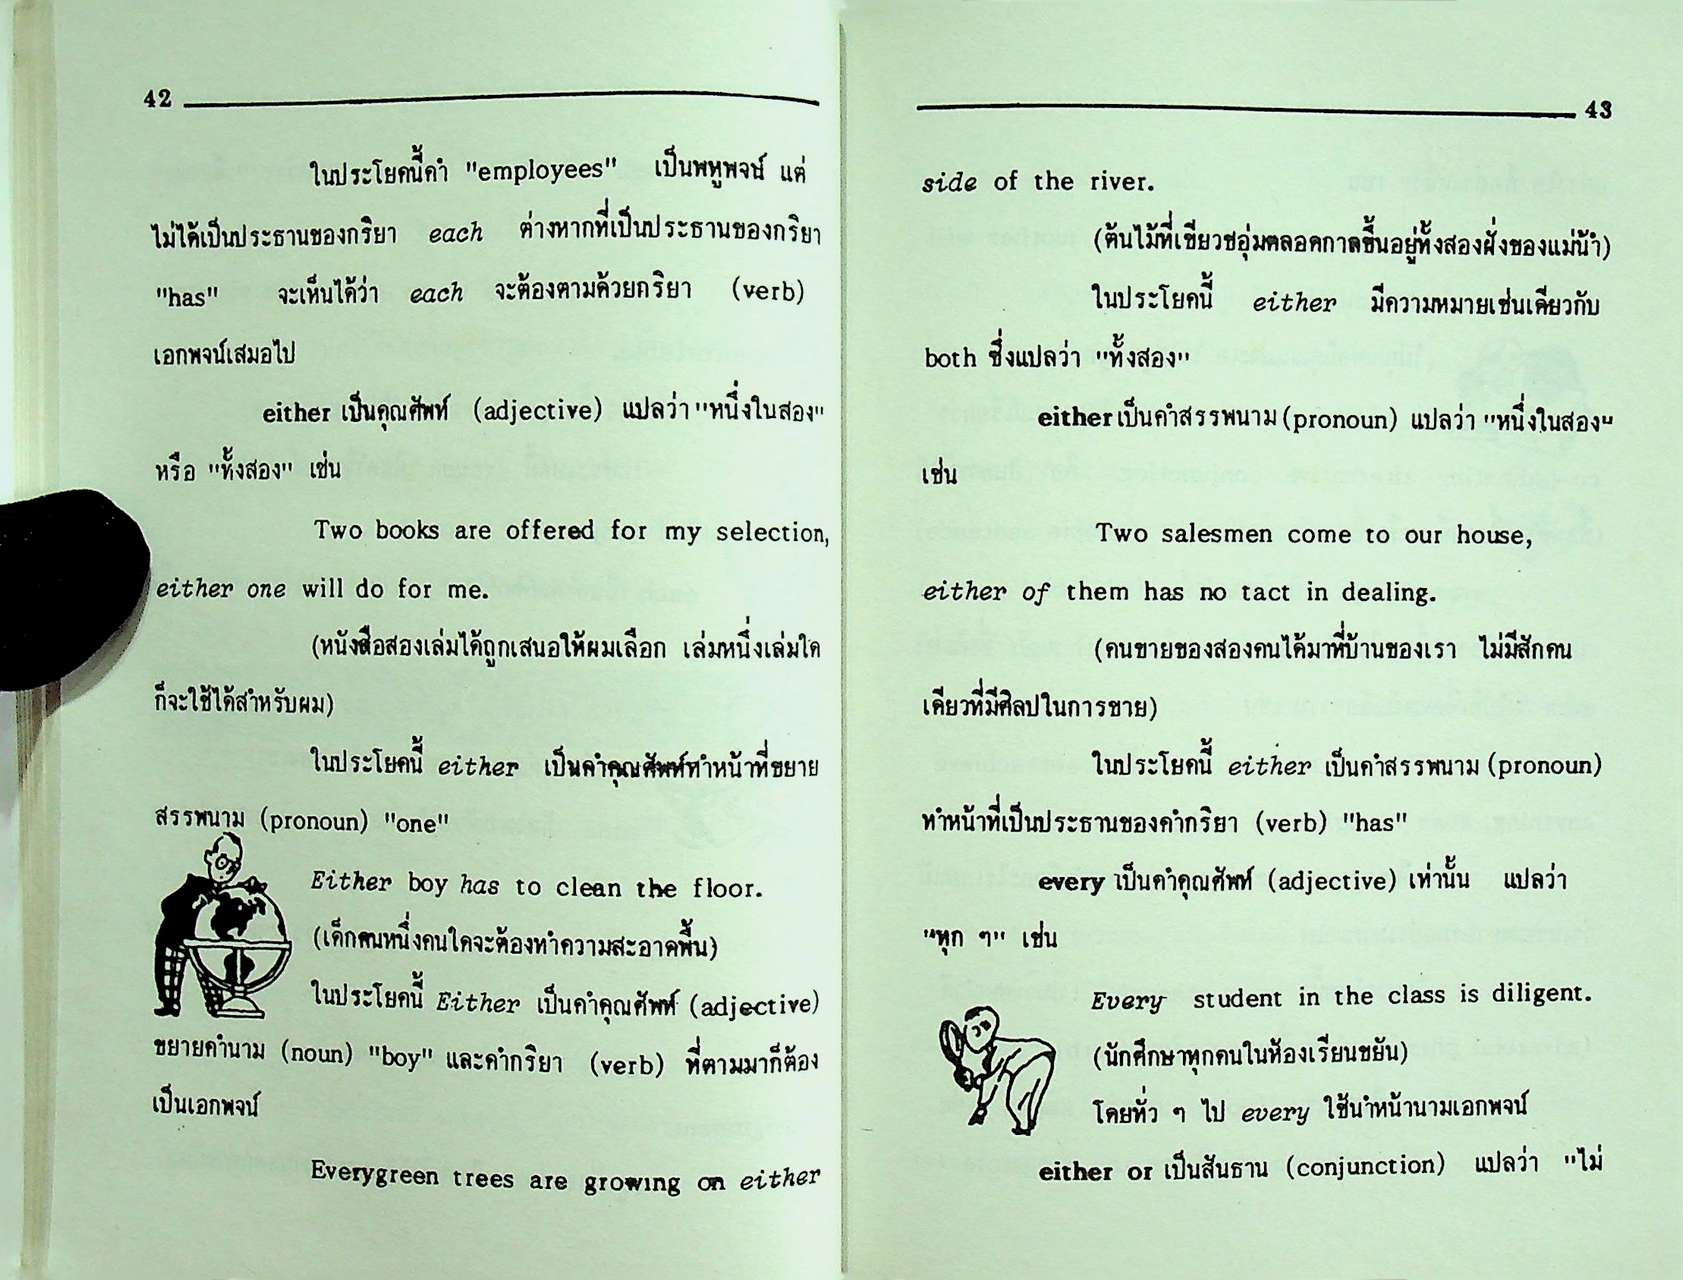 42
ในประโยคนี้คำ "employees" เป็นพหูพจน์ แต่
ไม่ได้เป็นประธานของกริยา each ต่างหากที่เป็นประธานของกริยา
"has" จะเห็นได้ว่า each จะต้องตามด้วยกริยา (verb)
เอกพจน์เสมอไป
either เป็นคุณศัพท์ (adjective) แปลว่า "หนึ่งในสอง"
หรือ "ทั้งสอง" เช่น
Two books are offered for my selection,
either one will do for me.
(หนังสือสองเล่มได้ถูกเสนอให้ผมเลือก เล่มหนึ่งเล่มใด
ก็จะใช้ได้สำหรับผม)
ในประโยคนี้ either เป็นคำคุณศัพท์ทำหน้าที่ขยาย
สรรพนาม (pronoun) "one"
Either boy has to clean the floor.
(เด็กคนหนึ่งคนใดจะต้องทำความสะอาดพื้น)
ในประโยคนี้ Either เป็นคำคุณศัพท์ (adjective)
ขยายคำนาม (noun) "boy" และคำกริยา (verb) ที่ตามมาก็ต้อง
เป็นเอกพจน์
Everygreen trees are growing on either
43
side of the river.
(ต้นไม้ที่เขียวชอุ่มตลอดกาลขึ้นอยู่ทั้งสองฝั่งของแม่น้ำ)
ในประโยคนี้ either มีความหมายเช่นเดียวกับ
both ซึ่งแปลว่า "ทั้งสอง"
either เป็นคำสรรพนาม (pronoun) แปลว่า "หนึ่งในสอง"
เช่น
Two salesmen come to our house,
either of them has no tact in dealing.
(คนขายของสองคนได้มาที่บ้านของเรา ไม่มีสักคน
เดียวที่มีศิลปในการขาย)
ในประโยคนี้ either เป็นคำสรรพนาม (pronoun)
ทำหน้าที่เป็นประธานของคำกริยา (verb) "has"
every เป็นคำคุณศัพท์ (adjective) เท่านั้น แปลว่า
"ทุก ๆ" เช่น
Every student in the class is diligent.
(นักศึกษาทุกคนในห้องเรียนขยัน)
โดยทั่ว ๆ ไป every ใช้นำหน้านามเอกพจน์
either or เป็นสันธาน (conjunction) แปลว่า "ไม่